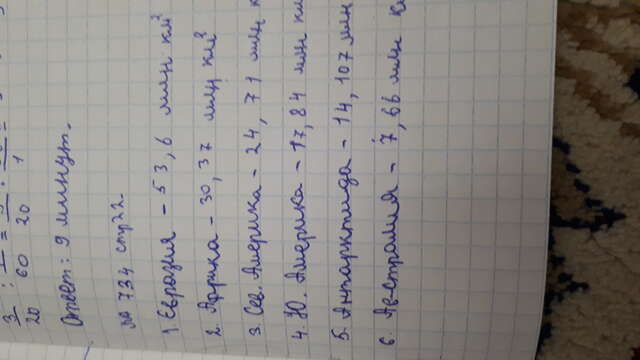 3/20 : 1/60 = 3/20 ·
Ответ: 9 минут.
№ 734 стр 22.
1. Евразия - 53,6 млн км²
2. Африка - 30,37 млн км²
3. Сев. Америка - 24,71 млн к
4. Ю. Америка - 17,84 млн км
5. Антарктида - 14,107 млн
6. Австралия - 7,66 млн км